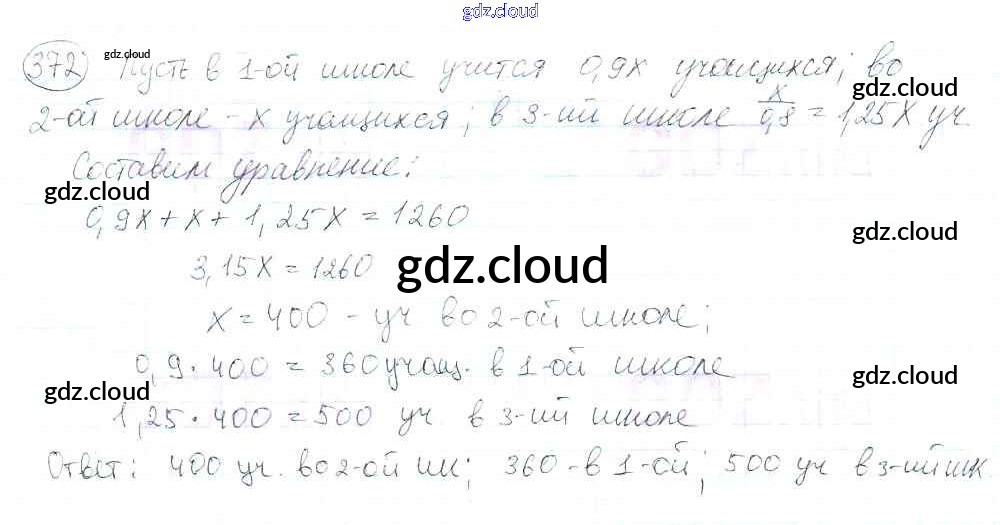 gdz.cloud
372 gdz.cloud Пусть в 1-ой школе учится 0,9x учащихся; во
gdz.cloud gdz.cloud
2-ой школе - x учащихся; в 3-ий школе x/0,8 = 1,25x уч.
Составим уравнение:
gdz.cloud
0,9x + x + 1,25x = 1260
gdz.cloud
3,15x = 1260
gdz.cloud
x = 400 - уч во 2-ой школе;
0,9 · 400 = 360 учащ. в 1-ой школе
gdz.cloud gdz.cloud
1,25 · 400 = 500 уч. в 3-ий школе
Ответ: 400 уч. во 2-ой шк; 360 - в 1-ой; 500 уч в 3-ий шк.